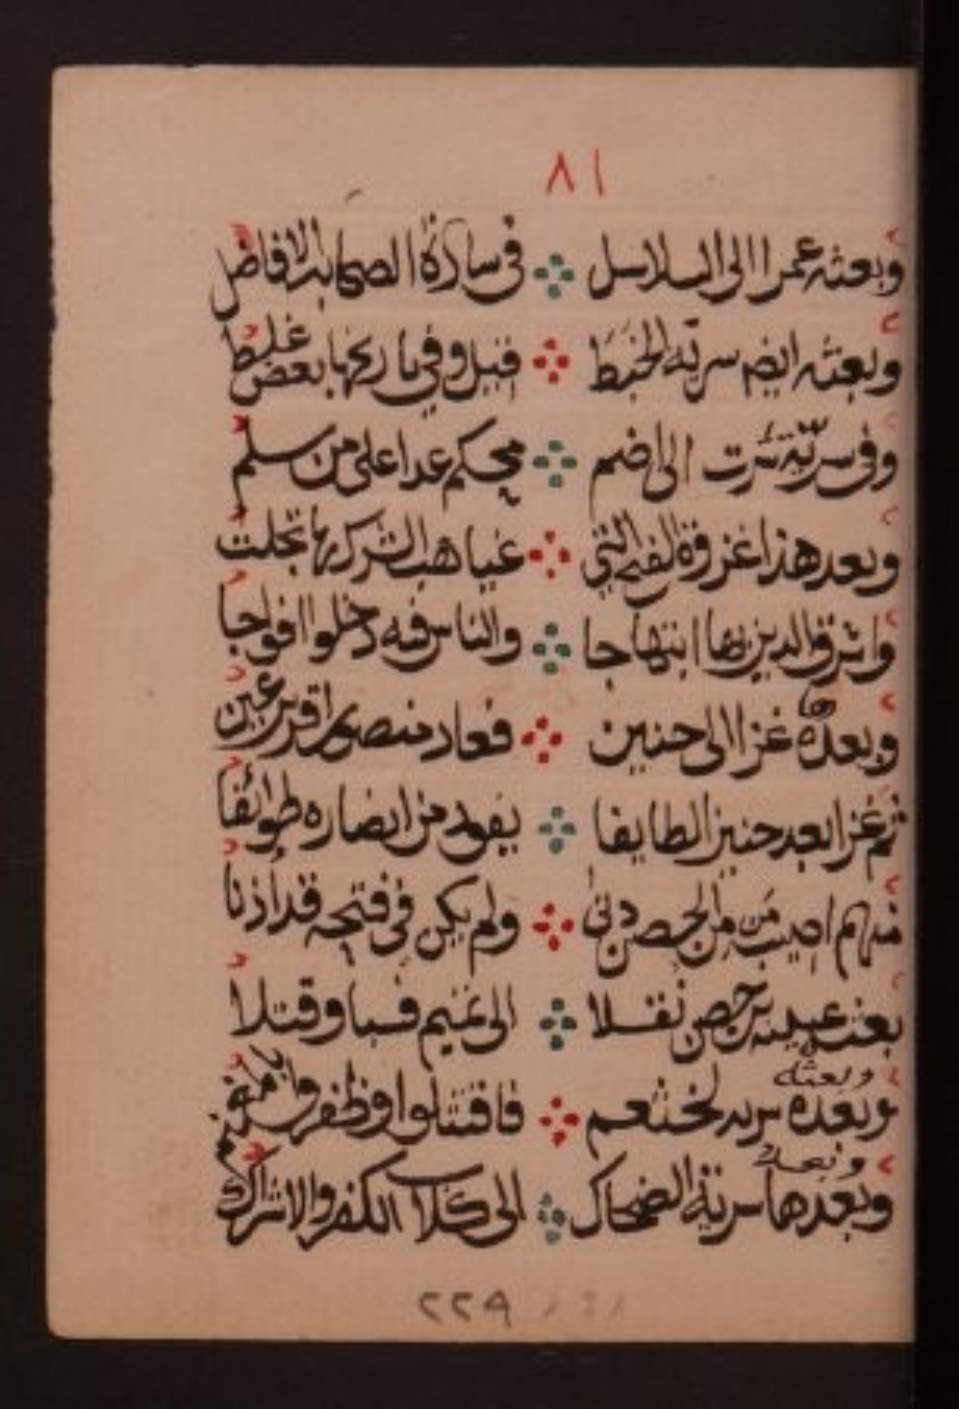 ٨١
وبعثه عمرا الى السلاسل في سادة الصحابة الافاضل
وبعثه ايضا سرية الخبط قيل وفي تاريخها بعض غلط
وفي سرية سرت الى اضم محكم عدا على من سلم
وبعد هذا غزوة الفتح التي غياهب الشرك بها تجلت
واشرق الدين بها ابتهاجا والناس فيه دخلوا افواجا
وبعده ها غزا الى حنين فعاد منصورا قرير عين
ثم غزا بعد حنين الطايفا يقود من انصاره طوائفا
منهم اصيب من من الحصن دنى ولم يكن في فتحه قد أذنا
بعث عيينه بن حصن نقلا الى تميم فسبا وقتلا
وبعثه
وبعده سريه لخثعم فاقتتلوا وظفروا
وبعث
وبعدها سرية الضحاك الى كلاب الكفر والاشراك
٢٢٩